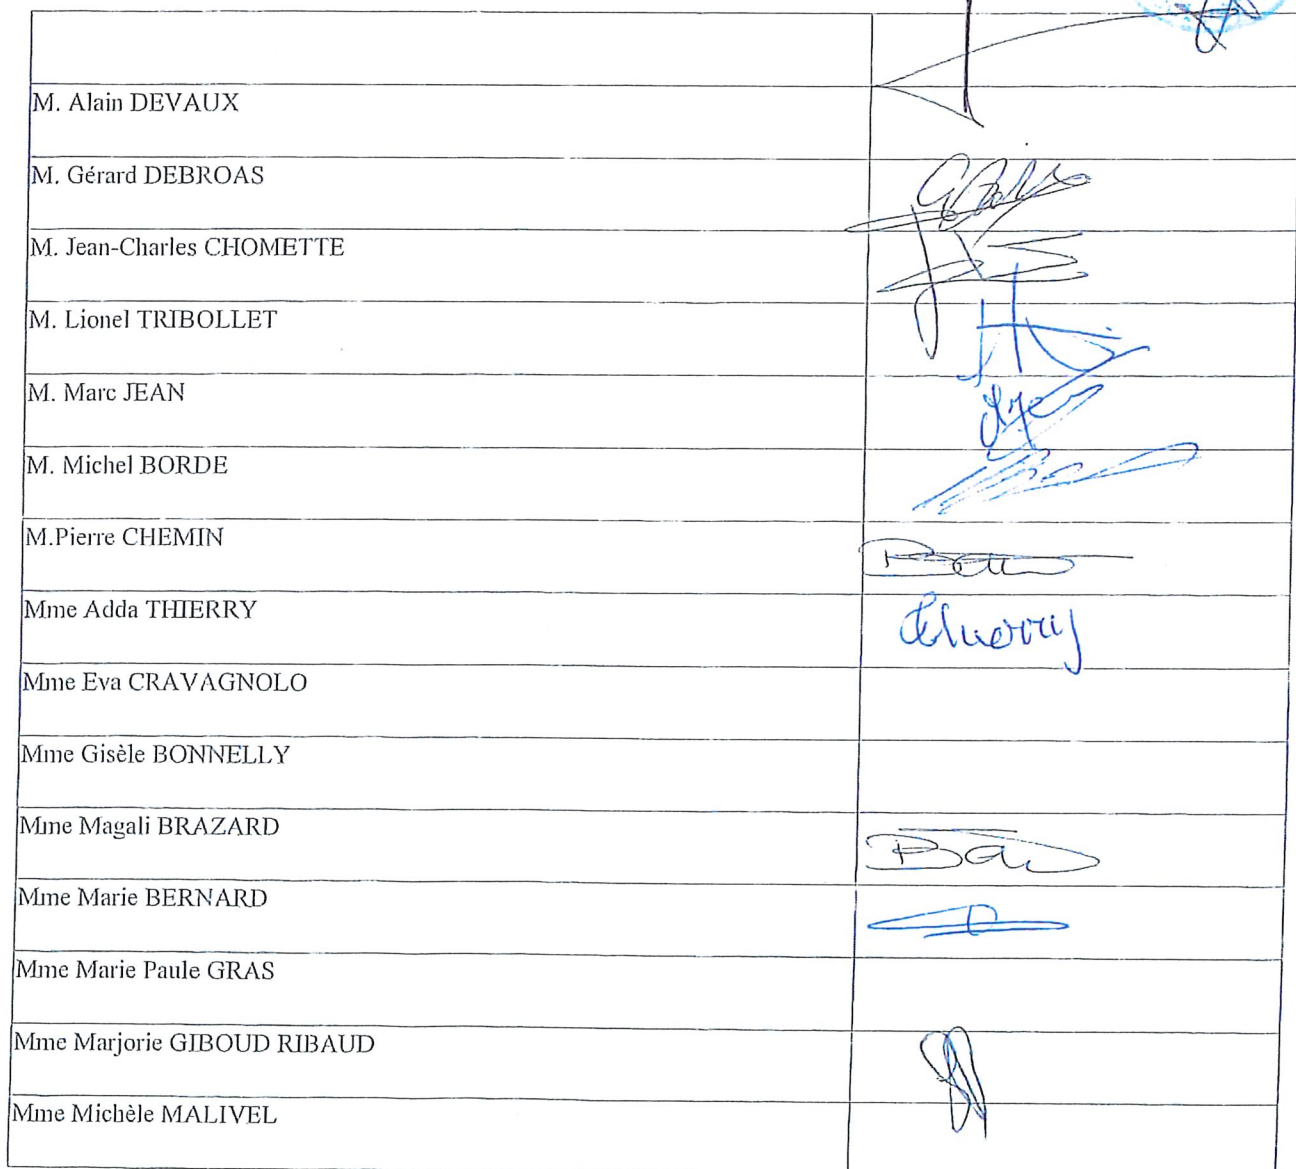 M. Alain DEVAUX
M. Gérard DEBROAS
M. Jean-Charles CHOMETTE
M. Lionel TRIBOLLET
M. Marc JEAN
M. Michel BORDE
M.Pierre CHEMIN
Mme Adda THIERRY
Mme Eva CRAVAGNOLO
Mme Gisèle BONNELLY
Mme Magali BRAZARD
Mme Marie BERNARD
Mme Marie Paule GRAS
Mme Marjorie GIBOUD RIBAUD
Mme Michèle MALIVEL